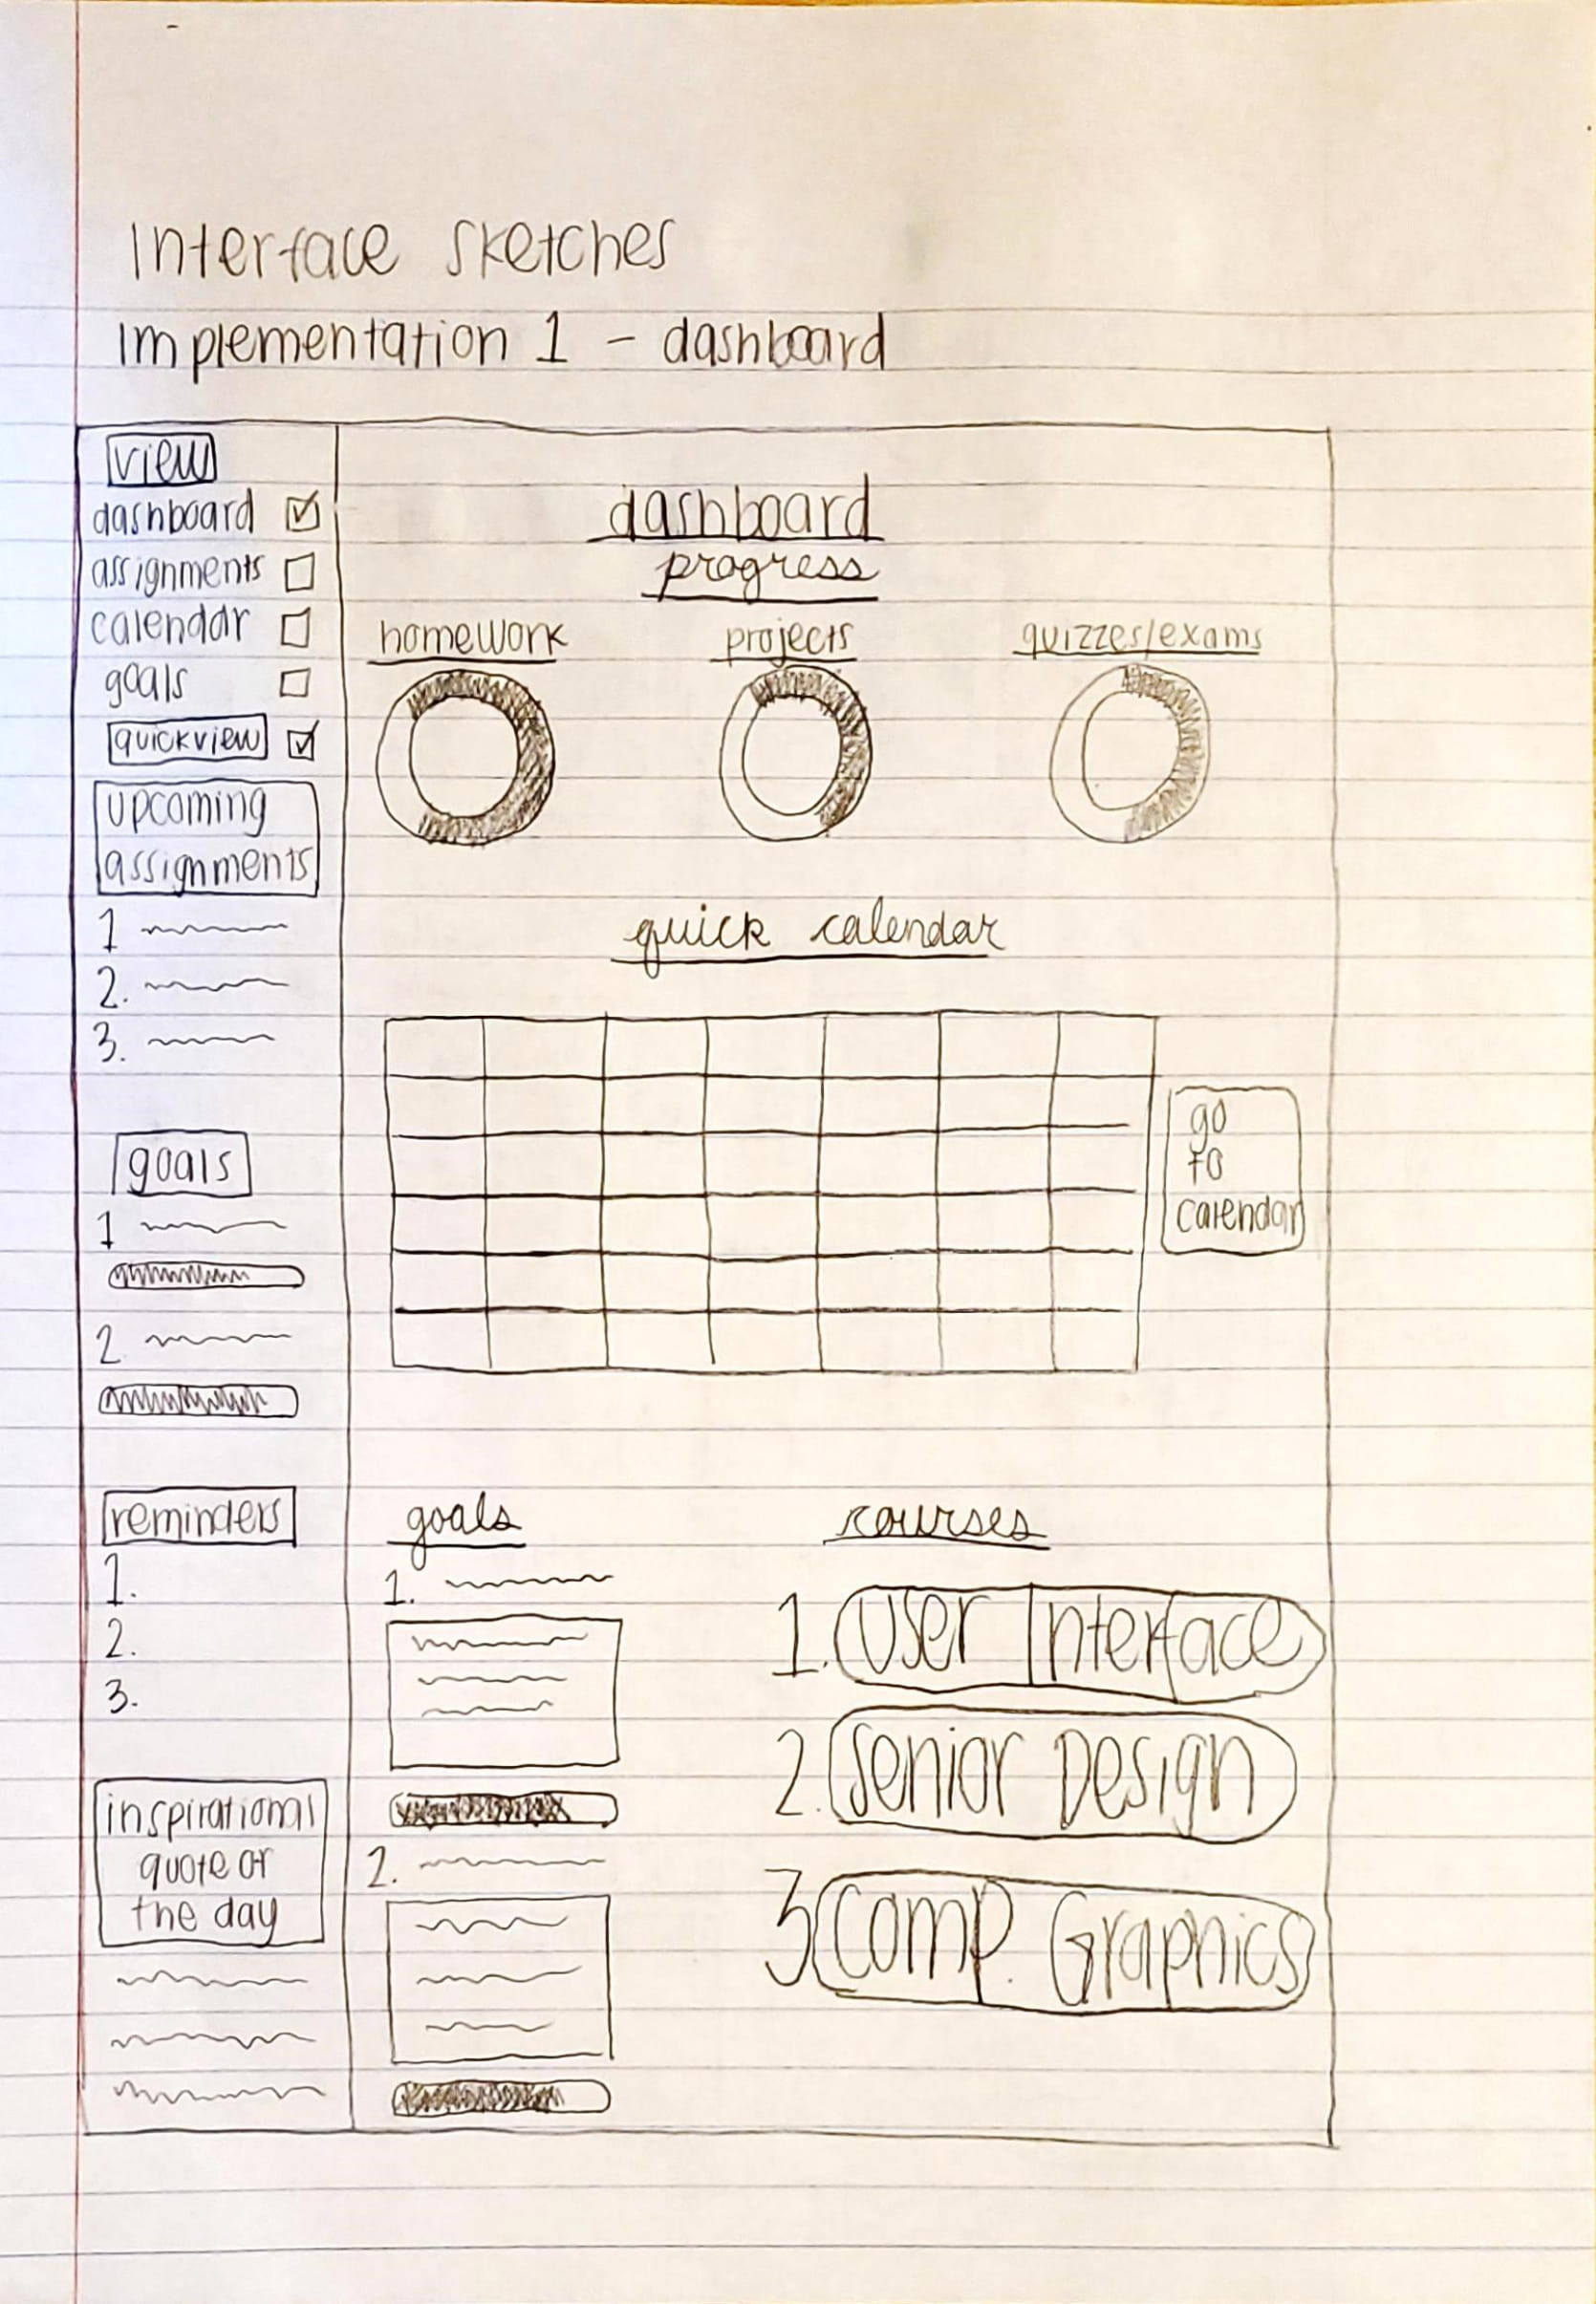 Interface sketches
Implementation 1 - dashboard
view
dashboard
assignments
calendar
goals
quickview
upcoming
assignments
1
2.
3.
goals
1
2
reminders
1.
2.
3.
inspirational
quote of
the day
dashboard
progress
homework
projects
quizzes/exams
quick calendar
go
to
calendar
goals
1.
2.
courses
1. User Interface
2. Senior Design
3 Comp. Graphics